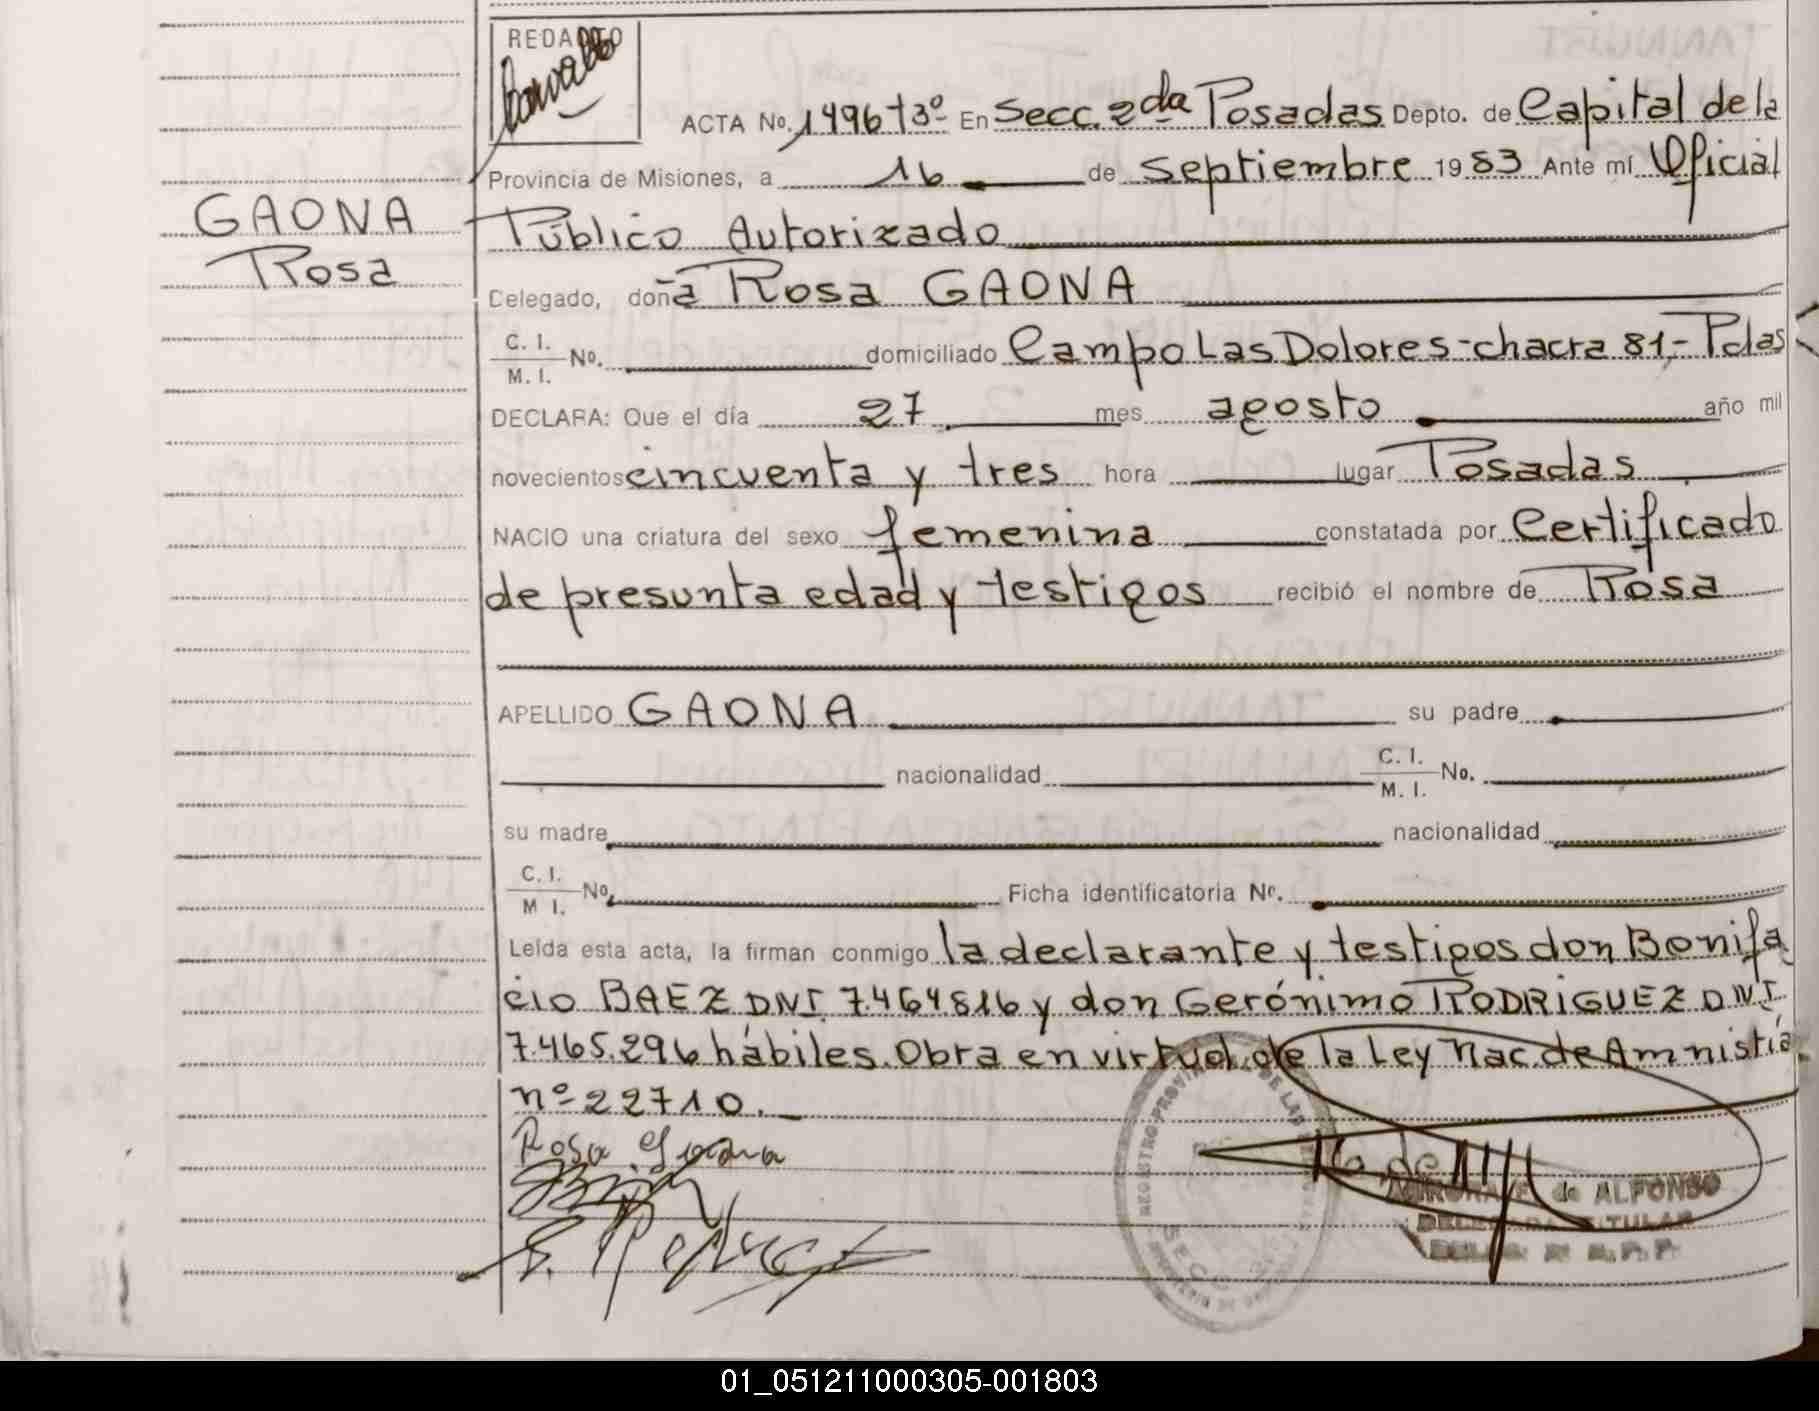 REDACTO
Carvallo
ACTA No. 1496 t3º En Secc. 2da Posadas Depto. de Capital de la
Provincia de Misiones, a 16 de septiembre 1983 Ante mí Oficial
GAONA
Rosa
Público Autorizado
Celegado, doña Rosa GAONA
C. I.
M. I. No. domiciliado Campo Las Dolores - chacra 81,- Pdas
DECLARA: Que el día 27 mes agosto año mil
novecientos cincuenta y tres hora lugar Posadas
NACIO una criatura del sexo femenina constatada por Certificado
de presunta edad y testigos recibió el nombre de Rosa
APELLIDO GAONA su padre
nacionalidad C. I.
M. I. No.
su madre nacionalidad
C. I.
M I. No. Ficha identificatoria Nº.
Leída esta acta, la firman conmigo la declarante y testigos don Bonifa
cio BAEZ DNI. 7.464.816 y don Gerónimo RODRIGUEZ DNI.
7.465.296 hábiles. Obra en virtud de la Ley Nac. de Amnistía
nº 22710.
Rosa Gaona
REGISTRO PROVINCIAL DE LAS
SECC.
de ALFONSO
DELEGADA TITULAR
01_051211000305-001803